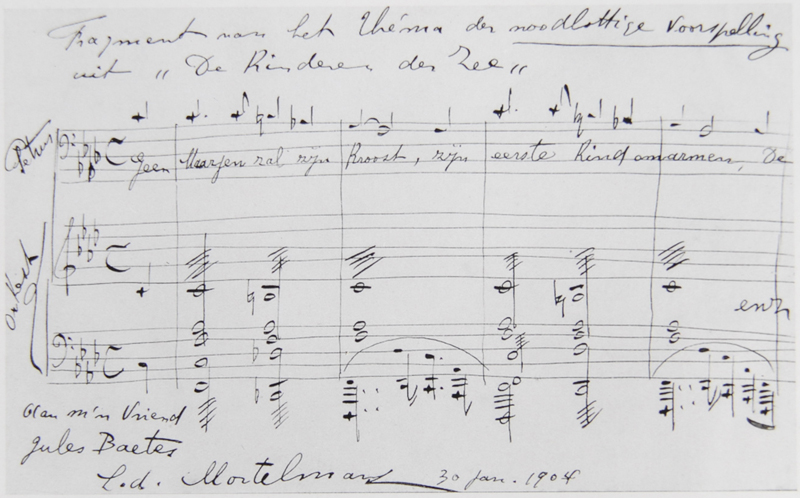 Fragment van het Théma der noodlottige Voorspelling
uit „ De Kinderen der Zee „
Petrus
Geen Maagen zal zijn Kroost, zijn eerste Kind omarmen, De
Orkest
enz
Aan m'n Vriend
Jules Baetes
Lod. Mortelmans 30 jan. 1904